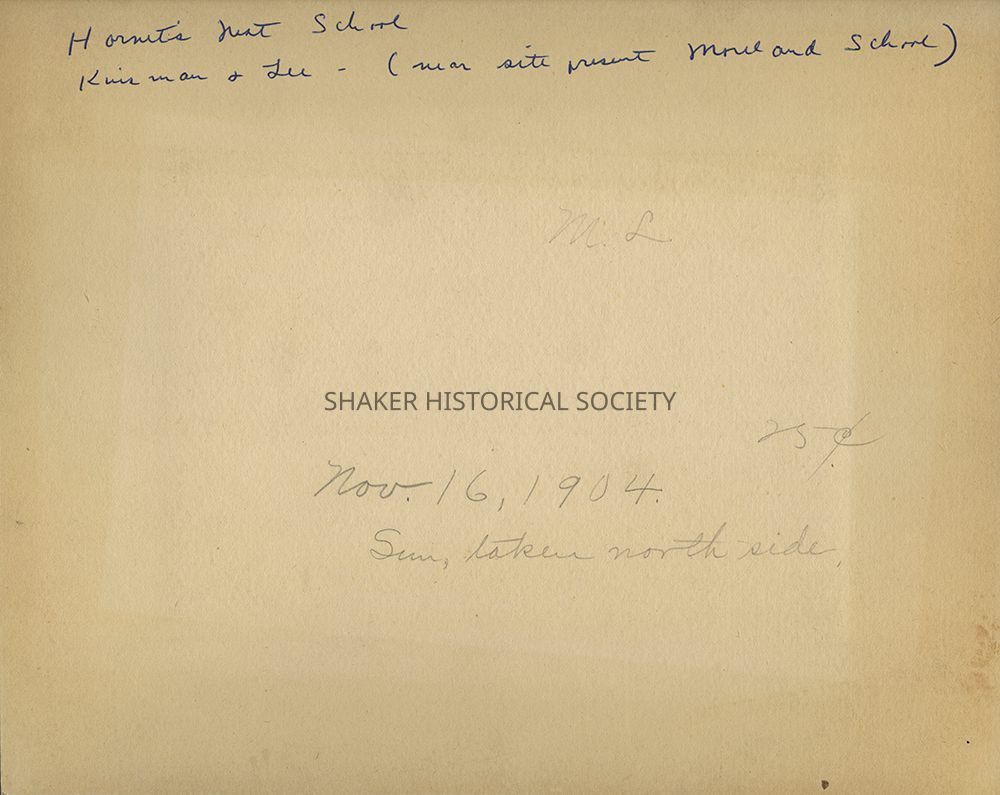 Hornet's Nest School
Kinsman & Lee - (near site present Moreland School)
M. L.
SHAKER HISTORICAL SOCIETY
25¢
Nov. 16, 1904.
Sun, taken north side,